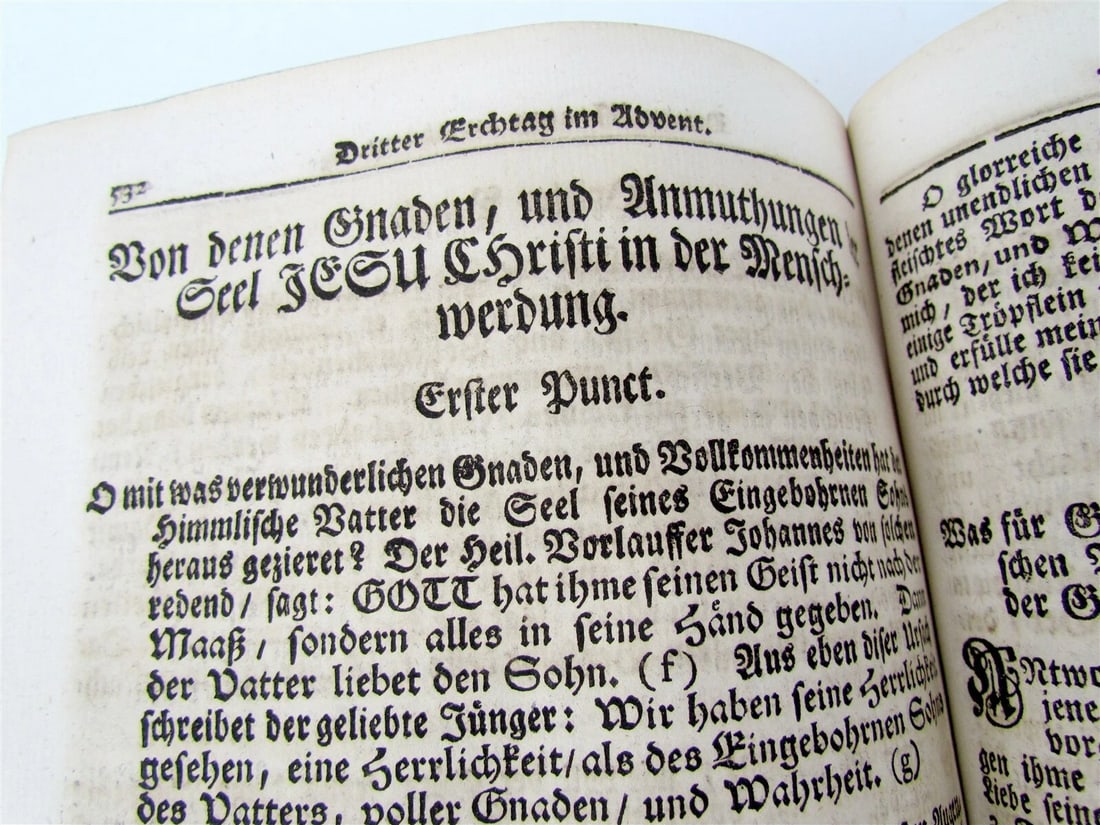 Dritter Erchtag im Advent.
532
Von denen Gnaden, und Anmuthungen der
Seel JESU CHristi in der Mensch-
werdung.
Erster Punct.
O mit was verwunderlichen Gnaden, und Vollkommenheiten hat der
Himmlische Vatter die Seel seines Eingebohrnen Sohns
heraus gezieret? Der Heil. Vorlauffer Johannes von solchen
redend / sagt: GOTT hat ihme seinen Geist nicht nach der
Maaß / sondern alles in seine Händ gegeben. Dann
der Vatter liebet den Sohn. (f) Aus eben diser Ursach
schreibet der geliebte Jünger: Wir haben seine Herrlichkeit
gesehen, eine Herrlichkeit / als des Eingebohrnen Sohns
des Vatters, voller Gnaden / und Wahrheit. (g)
O glorreiche
denen unendlichen
fleischtes Wort
Gnaden, und
mich, der ich
einige Tröpflein
und erfülle
durch welche sie
Was für
schen
der
ANtwo
jene
vor
gen ihme
Liebe seine